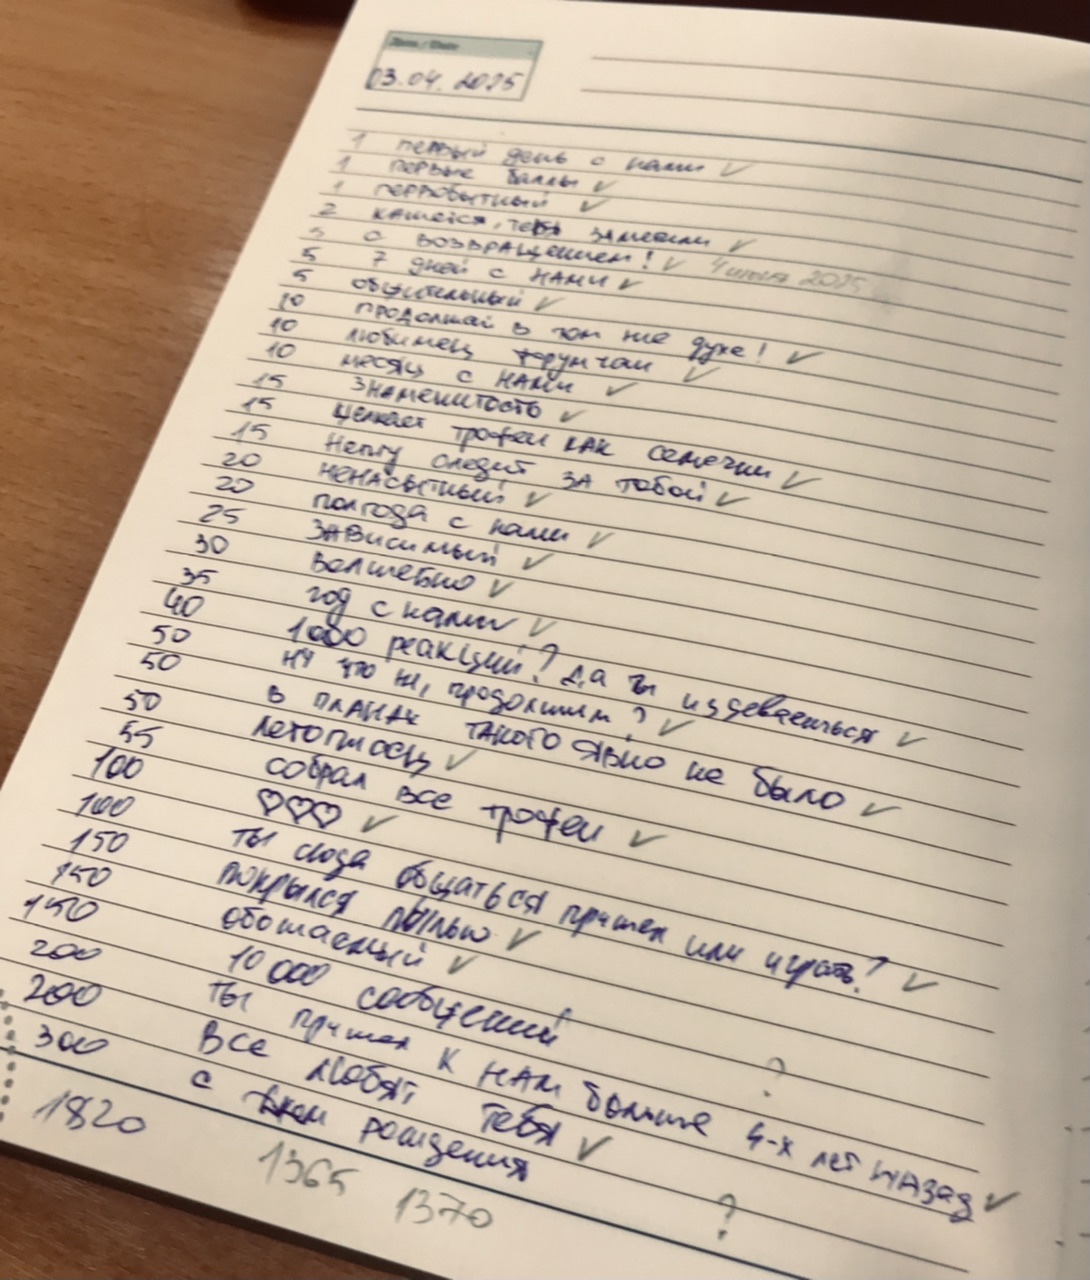 Дата / Date
03.04.2025
1 первый день с нами ✓
1 первые баллы ✓
1 первобытный ✓
2 кажется, тебя заметили ✓
5 с возвращением! ✓ 4 июля 2025
5 7 дней с нами ✓
5 общительный ✓
10 продолжай в том же духе! ✓
10 любимец ✓
10 месяц с нами ✓
15 знаменитость ✓
15 щелкает трофеи как семечки ✓
15 Неппу следит за тобой ✓
20 ненасытный ✓
20 полгода с нами ✓
25 зависимый ✓
30 волшебно ✓
35 год с нами ✓
40 1000 реакций? Да ты издеваешься ✓
50 ну что ж, продолжим? ✓
50 в планах такого явно не было ✓
50 летописец ✓
55 собрал все трофеи ✓
100 ♡♡♡ ✓
100 ты сюда общаться пришел или играть? ✓
150 покрылся пылью ✓
150 обожаемый ✓
150 10 000 сообщений ?
200 ты пришел к нам больше 4-х лет назад ✓
200 Все любят тебя ✓
300 с днем рождения ?
1820 1365 1370